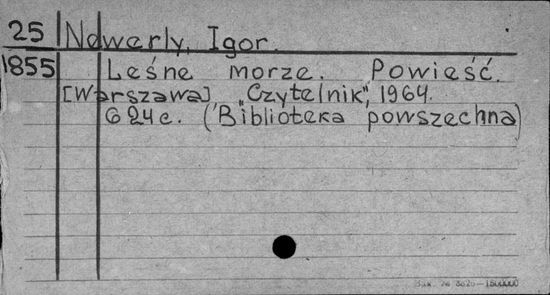 25 Newerly, Igor.
1855 Leśne morze. Powieść.
[Warszawa], „Czytelnik", 1964.
624 c. (Biblioteka powszechna)
Зак. 3626—1500000